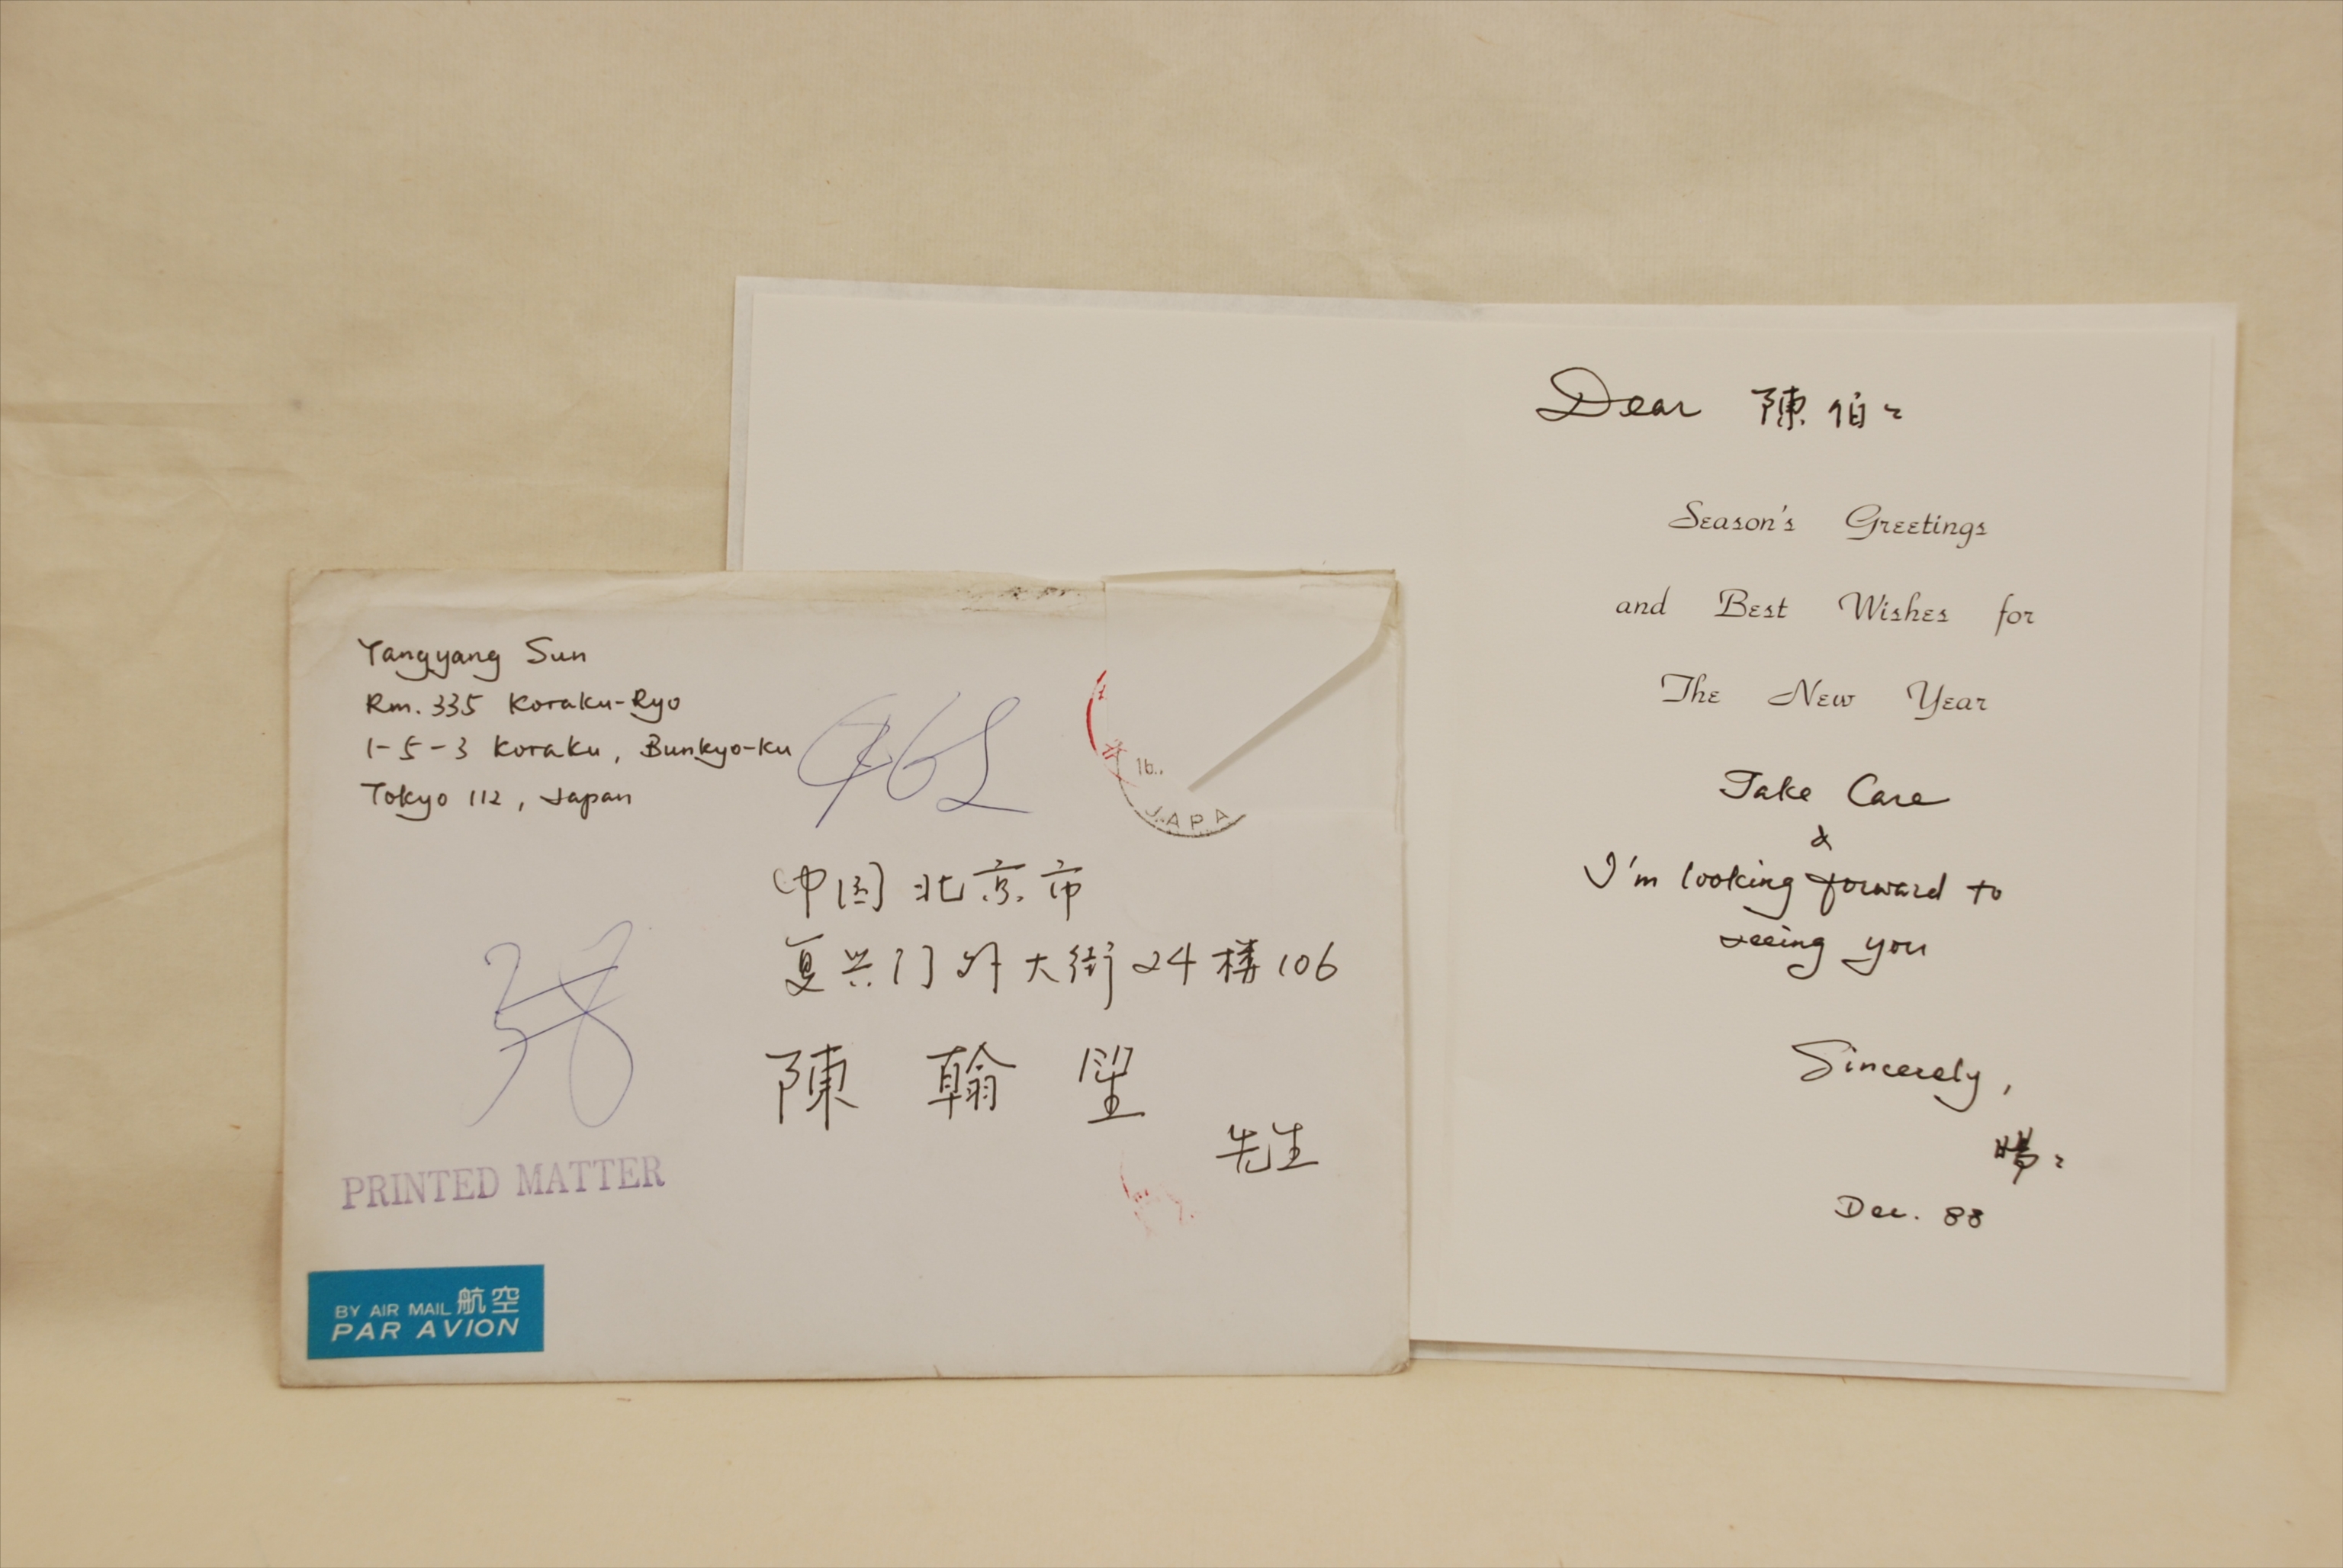 Yangyang Sun
Rm. 335 Koraku-Ryo
1-5-3 Koraku, Bunkyo-Ku
Tokyo 112, Japan
16
JAPA
(中国) 北京市
复兴门外大街24楼106
陳翰笙
先生
PRINTED MATTER
BY AIR MAIL 航空
PAR AVION
Dear 陳伯々
Season's Greetings
and Best Wishes for
The New Year
Take Care
&
I'm looking forward to
seeing you
Sincerely,
Dec. 88